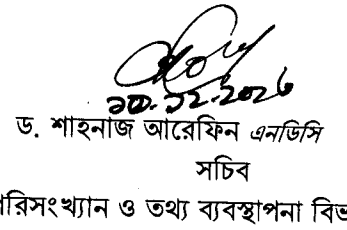 ড. শাহনাজ আরেফিন এনডিসি
সচিব
রিসংখ্যান ও তথ্য ব্যবস্থাপনা বিভ